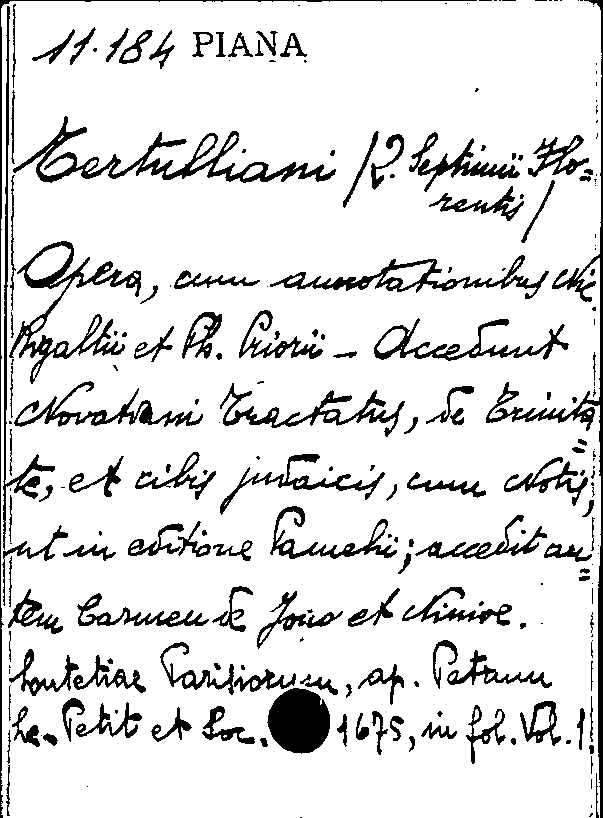 11.184 PIANA
Tertulliani /Q. Septimii Flo=
rentis/
Opera, cum annotationibus Nic.
Rigaltii et Ph. Priorii - Accedunt
Novatiani Tractatus, de Trinita
te, et cibis judaicis, cum Notis,
ut in editione Pamelii; accedit au=
tem Carmen de Jona et Ninive.
Loutetiae Parisiorum, ap. Petrum
Le Petit et Soc. 1675, in fol. Vol. 1.